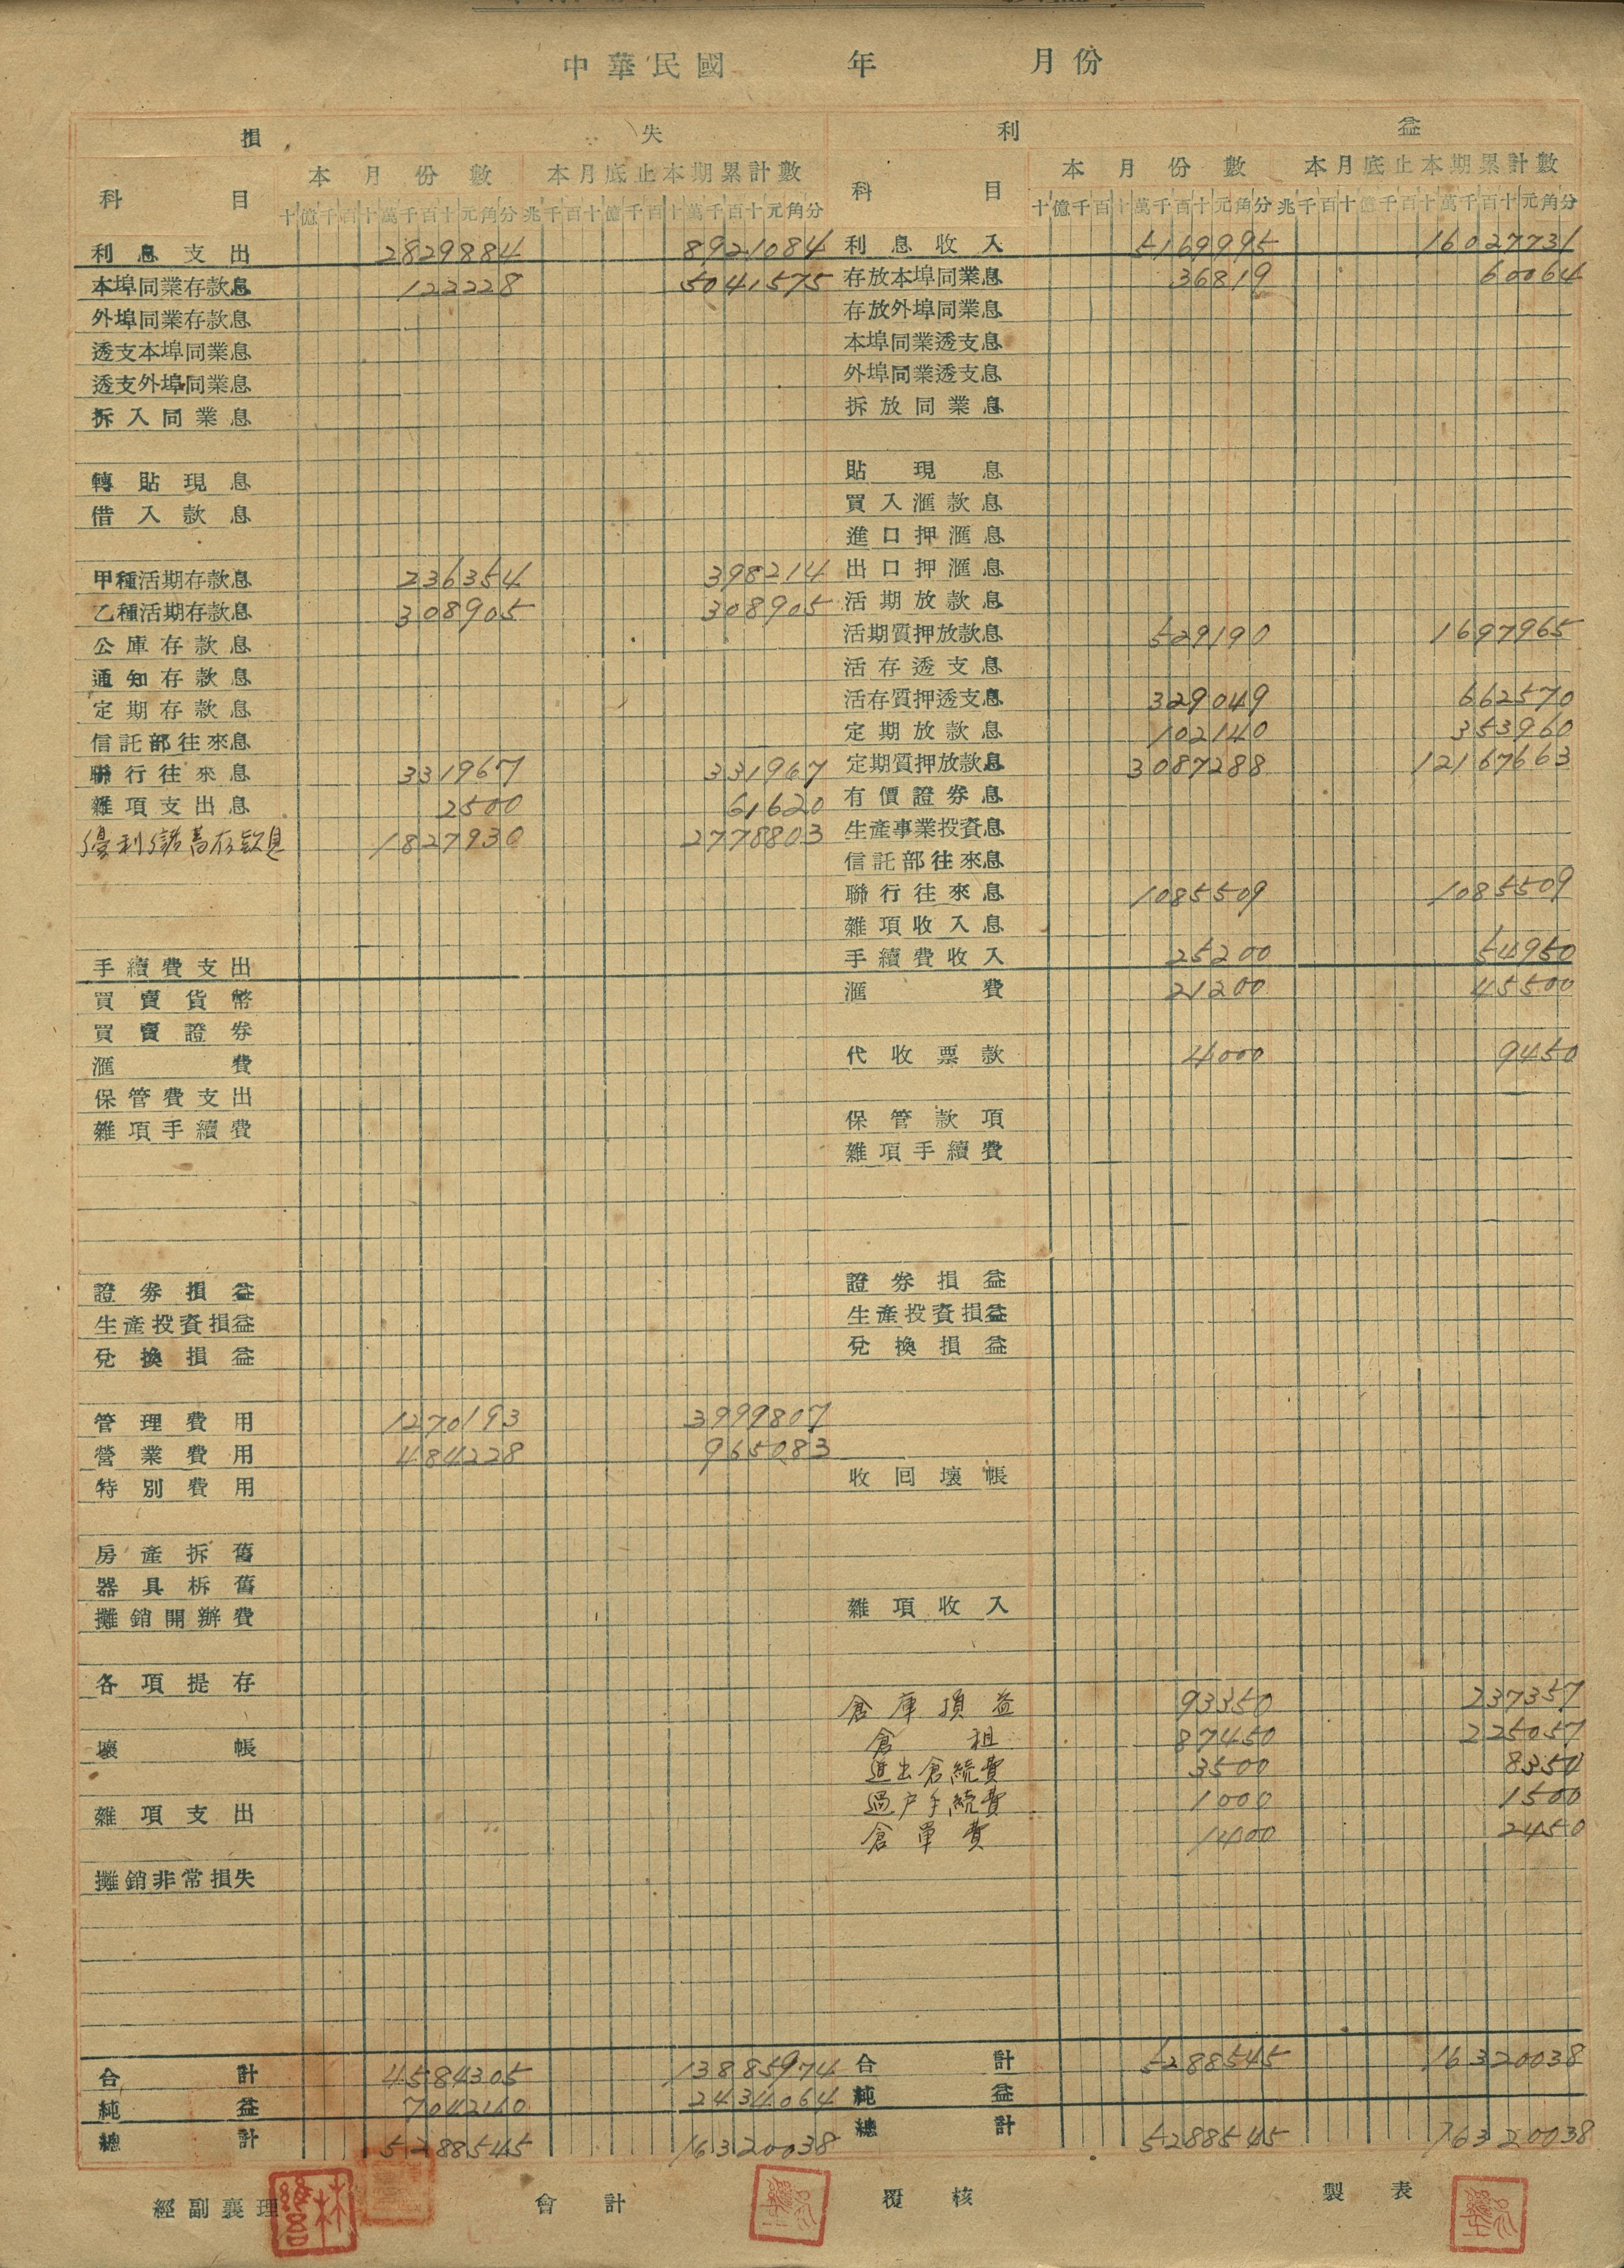 中華民國 年 月份
損 失 利 益
科 目 本月份數 本月底止本期累計數 科 目 本月份數 本月底止本期累計數
十億千百十萬千百十元角分 兆千百十億千百十萬千百十元角分 十億千百十萬千百十元角分 兆千百十億千百十萬千百十元角分
利息支出 2829884 8921084 利息收入 5169995 16027731
本埠同業存款息 122228 5041575 存放本埠同業息 36819 60064
外埠同業存款息 存放外埠同業息
透支本埠同業息 本埠同業透支息
透支外埠同業息 外埠同業透支息
拆入同業息 拆放同業息
轉貼現息 貼現息
借入款息 買入滙款息
進口押滙息
甲種活期存款息 236354 398214 出口押滙息
乙種活期存款息 308905 308905 活期放款息
公庫存款息 活期質押放款息 529190 1697965
通知存款息 活存透支息
定期存款息 活存質押透支息 329049 662570
信託部往來息 定期放款息 102140 353960
聯行往來息 331967 331967 定期質押放款息 3087288 12167663
雜項支出息 2500 61620 有價證券息
優利儲蓄存款息 1827930 2778803 生產事業投資息
信託部往來息
聯行往來息 1085509 1085509
雜項收入息
手續費支出 手續費收入 25200 54950
買賣貨幣 滙費 21200 45500
買賣證券
滙費 代收票款 4000 9450
保管費支出
雜項手續費 保管款項
雜項手續費
證券損益 證券損益
生產投資損益 生產投資損益
兌換損益 兌換損益
管理費用 1270193 3999807
營業費用 484228 965083
特別費用 收回壞帳
房產拆舊
器具柝舊
攤銷開辦費 雜項收入
各項提存
倉庫損益 93350 237357
壞帳 倉租 87450 225057
進出倉続費 3500 8350
雜項支出 過户手続費 1000 1500
倉單費 1400 2450
攤銷非常損失
合計 4584305 13885974 合計 5288545 16320038
純益 704240 2434064 純益
總計 5288545 16320038 總計 5288545 16320038
經副襄理 會計 覆核 製表